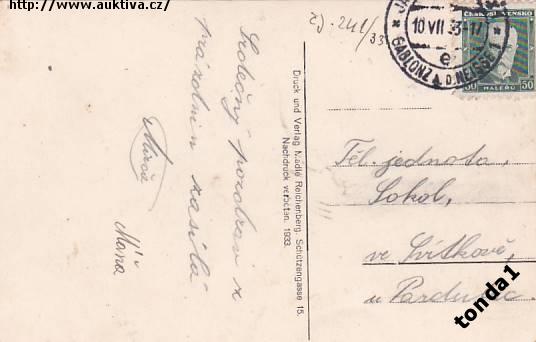 http://www.auktiva.cz/
Srdečný pozdrav z
prázdnin zasílá
Máňa
Druck und Verlag Mädle Reichenberg, Schützengasse 15.
Nachdruck verboten. 1933.
10 VII 33-17
e
GABLONZ A. D. NEISSE 1
ČESKOSLOVENSKO
50 HALÉŘŮ 50
Těl. jednota
Sokol,
ve Svítkově,
u Pardubic.
tonda1